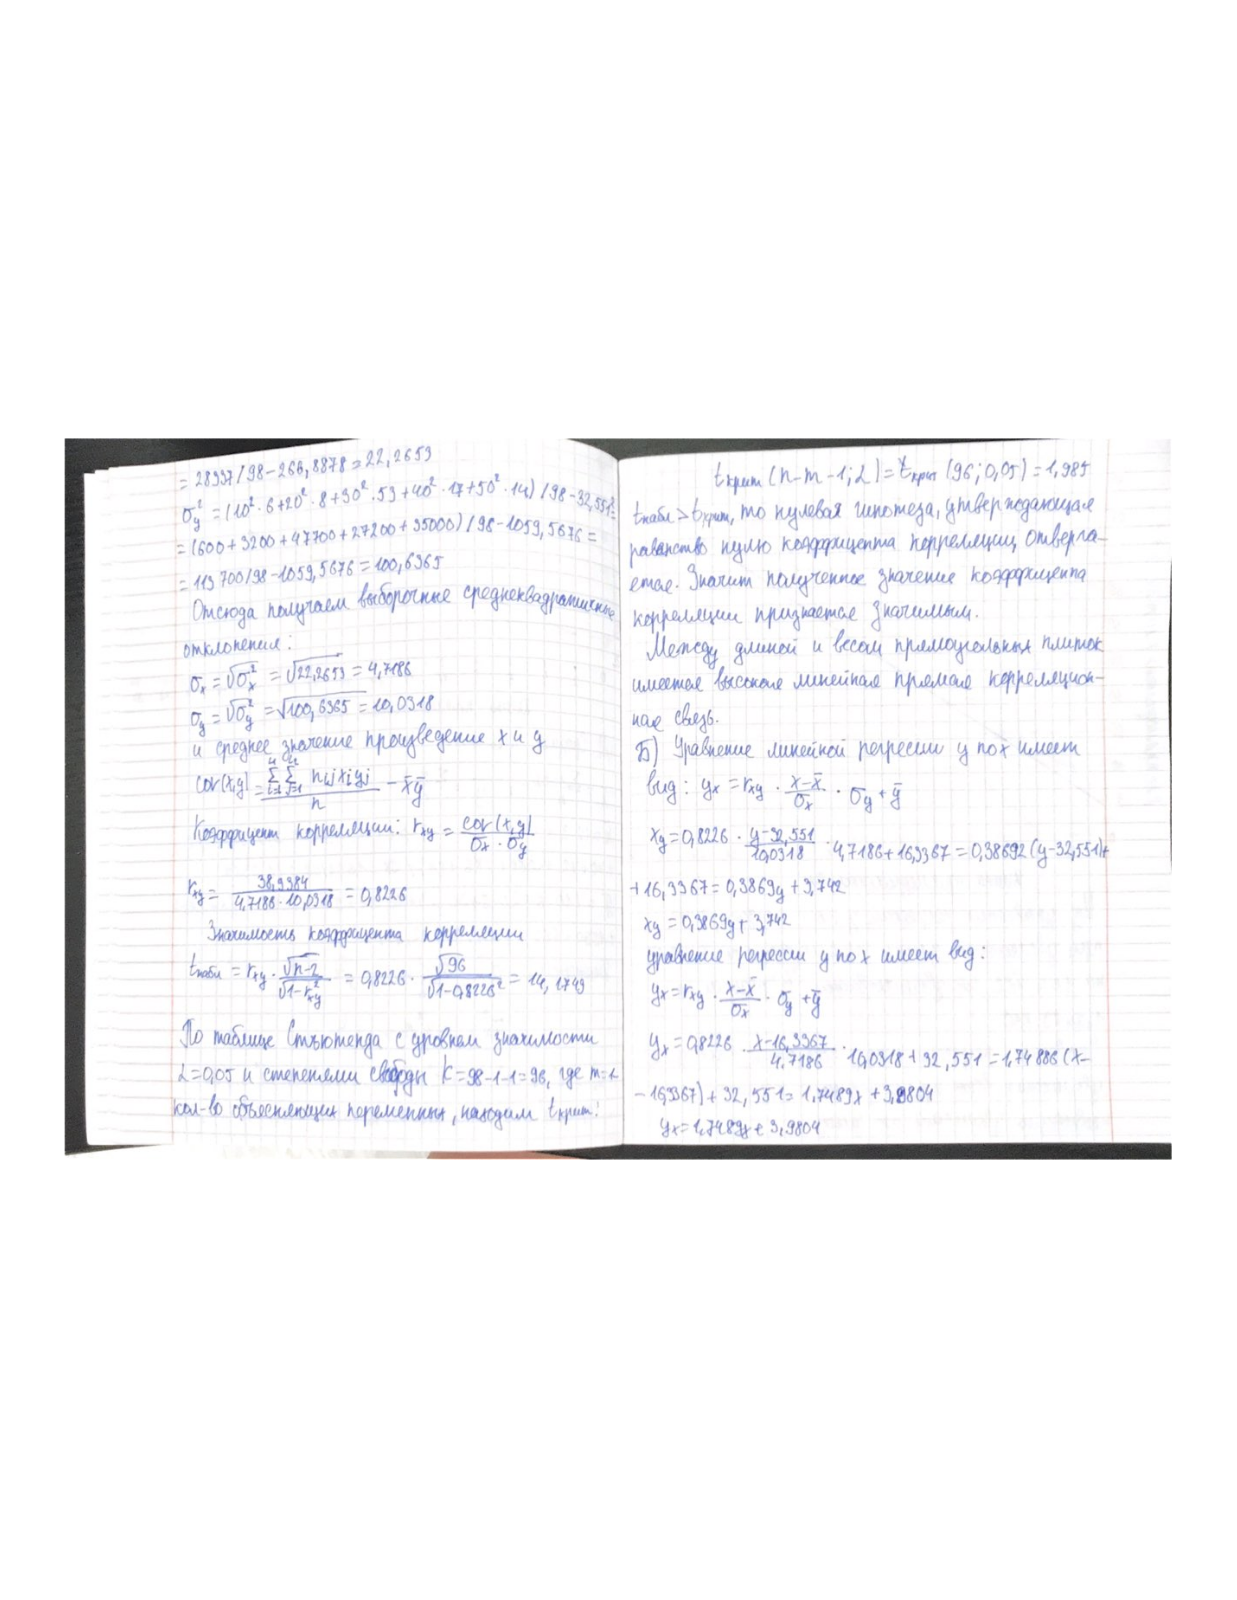 = 28337/98-266,8878 = 22,2653
σ_y² = (10²·6+20²·8+30²·53+40²·17+50²·14)/98-32,551² =
= (600+3200+47700+27200+35000)/98-1059,5676 =
= 113700/98-1059,5676 = 100,6365
Отсюда получаем выборочные среднеквадратичные
отклонения:
σ_x = √σ_x² = √22,2653 = 4,7186
σ_y = √σ_y² = √100,6365 = 10,0318
и среднее значение произведение x и y
cov(x,y) = ΣΣ n_ij x_i y_j / n - x̄ȳ
Коэффицент корреляции: r_xy = cov(x,y) / σ_x·σ_y
r_xy = 38,9384 / 4,7186·10,0318 = 0,8226
Значимость коэффицента корреляции
t_набл = r_xy · √n-2 / √1-r²_xy = 0,8226 · √96 / √1-0,8226² = 14,1749
По таблице Стьютента с уровнем значимости
α=0,05 и степенями свободы k=98-1-1=96, где m=1-
кол-во объясняющих переменных, находим t крит:
t крит (n-m-1; α) = t крит (96; 0,05) = 1,985
t набл > t крит, то нулевая гипотеза, утверждающая
равенство нулю коэффицента корреляции, отверга-
ется. Значит полученное значение коэффицента
корреляции признается значимым.
Между длиной и весом прямоугольных плиток
имеется высокая линейная прямая корреляцион-
ная связь.
Б) Уравнение линейной регрессии y по x имеет
вид: y_x = r_xy · x-x̄ / σ_x · σ_y + ȳ
x_y = 0,8226 · y-32,551 / 10,0318 · 4,7186+16,3367 = 0,38692(y-32,551)+
+ 16,3367 = 0,3869y + 3,742
x_y = 0,3869y + 3,742
уравнение регрессии y по x имеет вид:
y_x = r_xy · x-x̄ / σ_x · σ_y + ȳ
y_x = 0,8226 · x-16,3367 / 4,7186 · 10,0318 + 32,551 = 1,74886(x-
- 16,3367) + 32,551 = 1,7489x + 3,9804
y_x = 1,7489x + 3,9804